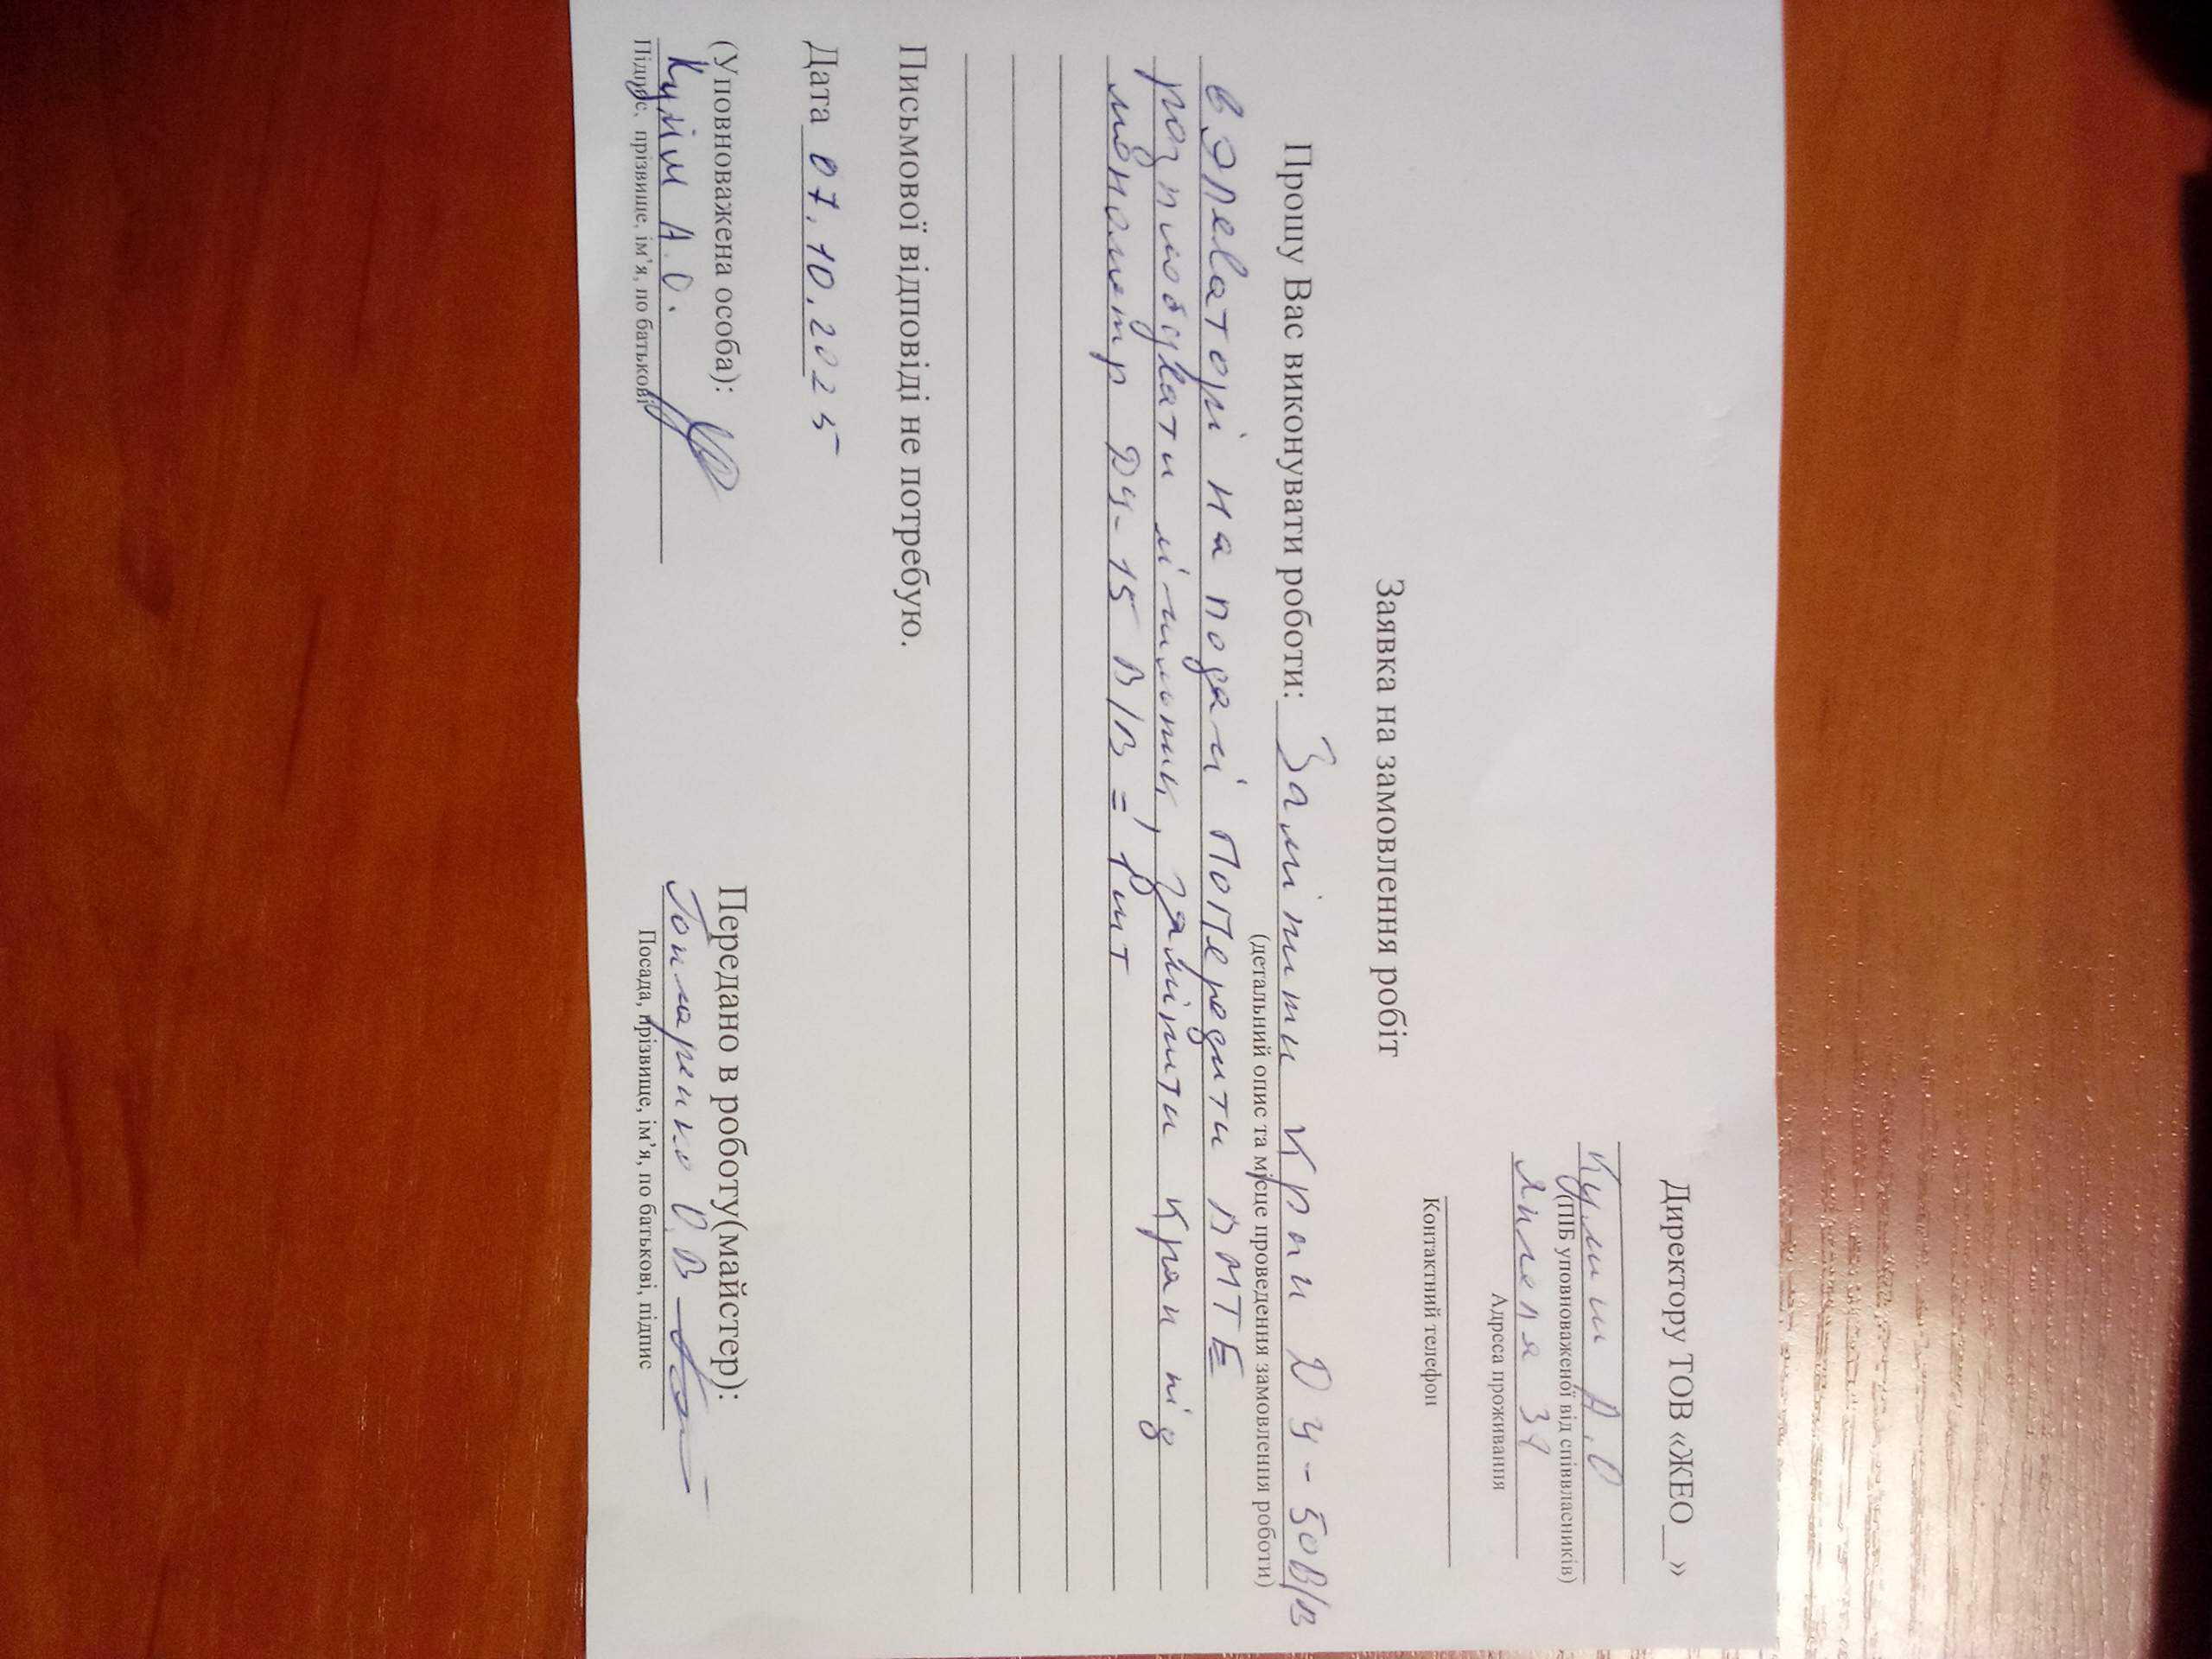 Директору ТОВ «ЖЕО__»
А.О
(ПІБ уповноваженої від співвласників)
Адреса проживання
Контактний телефон
Заявка на замовлення робіт
Прошу Вас виконувати роботи: Замінити кран Ду-50 В/В
(детальний опис та місце проведення замовлення роботи)
в элеваторі на подачі попередити ПМТЕ
розпломбувати лічильник, замінити кран під
монометр Ду-15 В/В = 1 шт
Письмової відповіді не потребую.
Дата 07.10.2025
(Уповноважена особа): Передано в роботу(майстер):
А.О. О.В
Підпис, прізвище, ім'я, по батькові Посада, прізвище, ім'я, по батькові, підпис